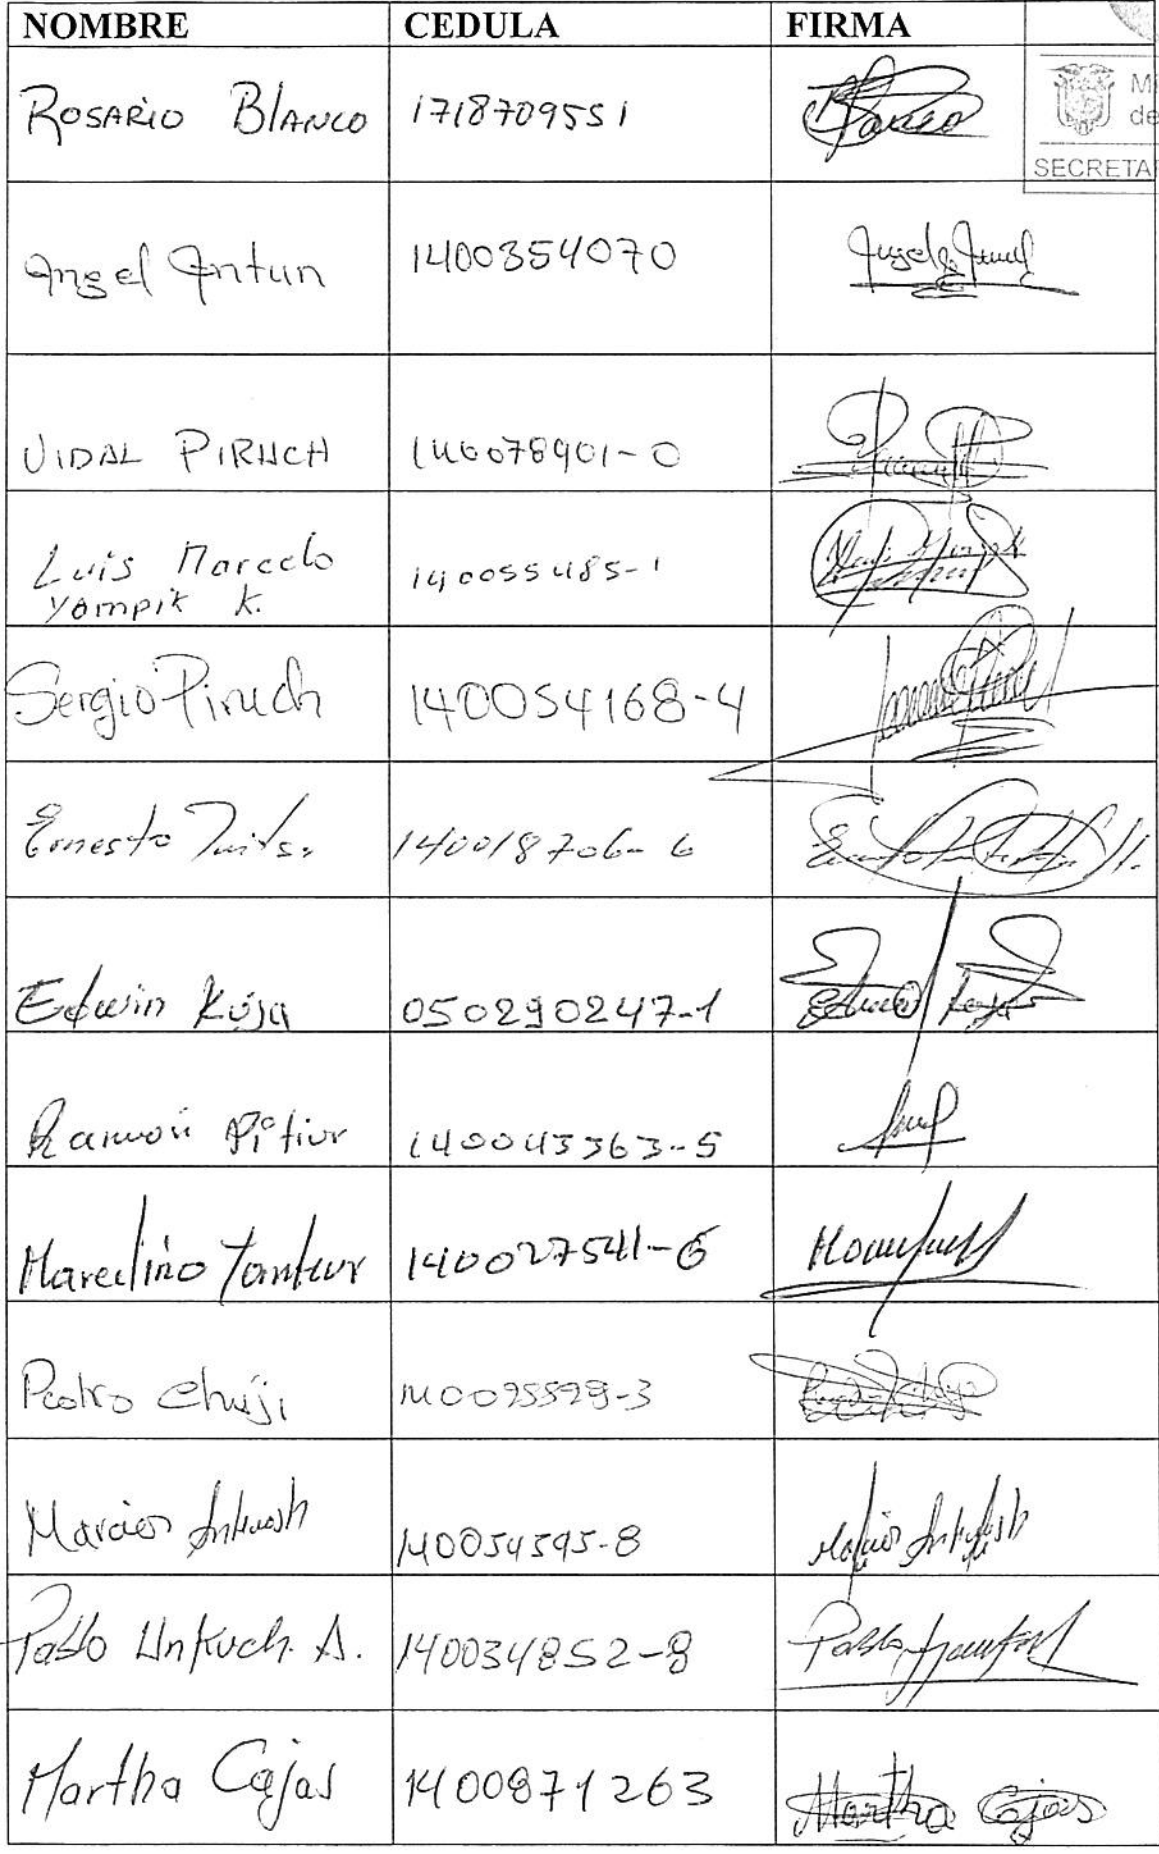 NOMBRE CEDULA FIRMA
Mi
de
SECRETA
Rosario Blanco 1718709551
Angel Antun 1400354070
VIDAL PIRUCH 140078901-0
Luis Marcelo
Yampik K. 140055485-1
Sergio Piruch 140054168-4
Ernesto 140018706-6
Edwin 050290247-1
Ramón Pitiur 140043363-5
Marcelino Tankur 140027541-6
Pedro Chuji 140025529-3
140054595-8
Pablo Unkuch. A. 140034852-8
Martha Cajas 1400871263 Martha Cajas